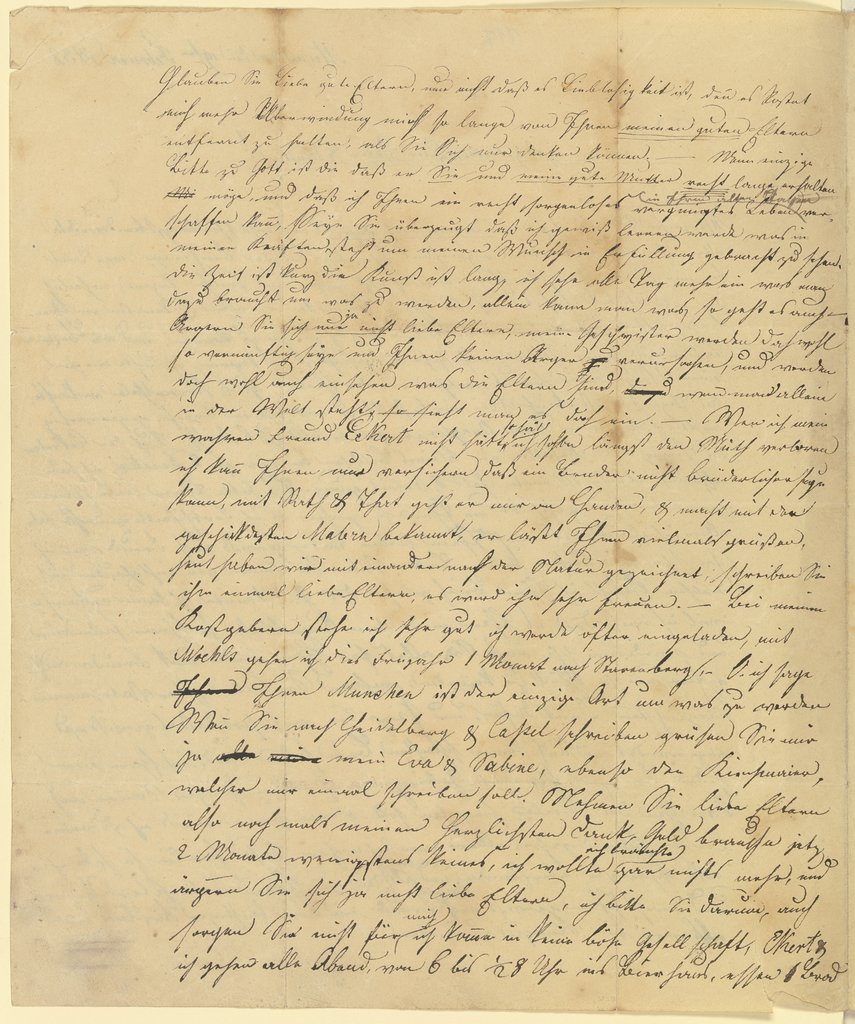 Glauben Sie liebe gute Eltern, nur nicht daß es Lieblosigkeit ist, den es kostet
mich mehr Überwindung mich so lange von Ihnen meinen guten Eltern
entfernt zu halten, als Sie Sich nur denken können. — Mein einzige
Bitte zu Gott ist die daß er Sie und meine gute Mutter recht lange erhalten
möge, und daß ich Ihnen ein recht sorgenloses vergnügtes Leben ver-
in Ihren alten Tagen
schaffen kann, Seyn Sie überzeugt daß ich gewiß lernen werde was in
meinen Kräften steht um meinen Wunsch in Erfüllung gebracht zu sehen.
die Zeit ist kurz die Kunst ist lang, ich sehe alle Tag mehr ein was man
dazu braucht um was zu werden, allein kann man was, so geht es auch —
Ärgern Sie sich nur ja nicht liebe Eltern, meine Geschwister werden doch wohl
so vernünftig seyn und Ihnen keinen Ärger verursachen, und werden
doch wohl auch einsehen was die Eltern sind, wenn man allein
in der Welt steht, so sieht man es doch ein. — Wen ich mein
wahren Freund Eckert nicht hätte, so hätt ich schon längst den Muth verloren
ich kann Ihnen nur versichern daß ein Bruder nicht brüderlicher seyn
kann, mit Rath & That geht er mir an Handen, & macht mit den
geschicktesten Malern bekannt, er läßt Ihnen vielmals grüßen,
heut haben wir mit einander nach der Natur gezeichnet, schreiben Sie
ihm einmal liebe Eltern, es wird ihn sehr freuen. — Bei meinen
Kostgebern stehe ich sehr gut ich werde öfter eingeladen, mit
Moehls gehen ich dies Frujahr 1 Monat nach Starenberg. — O ich sage
Ihnen Munchen ist der einzige Ort um was zu werden
Wen Sie nach Heidelberg & Caßel schreiben grüsen Sie mir
ja mein Eva & Sabine, ebenso den Kirchmaier,
welcher mir einmal schreiben soll. Nehmen Sie liebe Eltern
also noch mals meinen herzlichsten Dank, Geld brauche jetz
2 Monate wenigstens keines, ich wollte ich bräuchte gar nichts mehr, und
ärgern Sie sich ja nicht liebe Eltern, ich bitte Sie darum, auch
sorgen Sie nicht für mich ich komme in keine böse Gesellschaft, Ekert &
ich gehen alle Abend, von 6 bis ½8 Uhr ins Bierhaus, essen 1 Brod